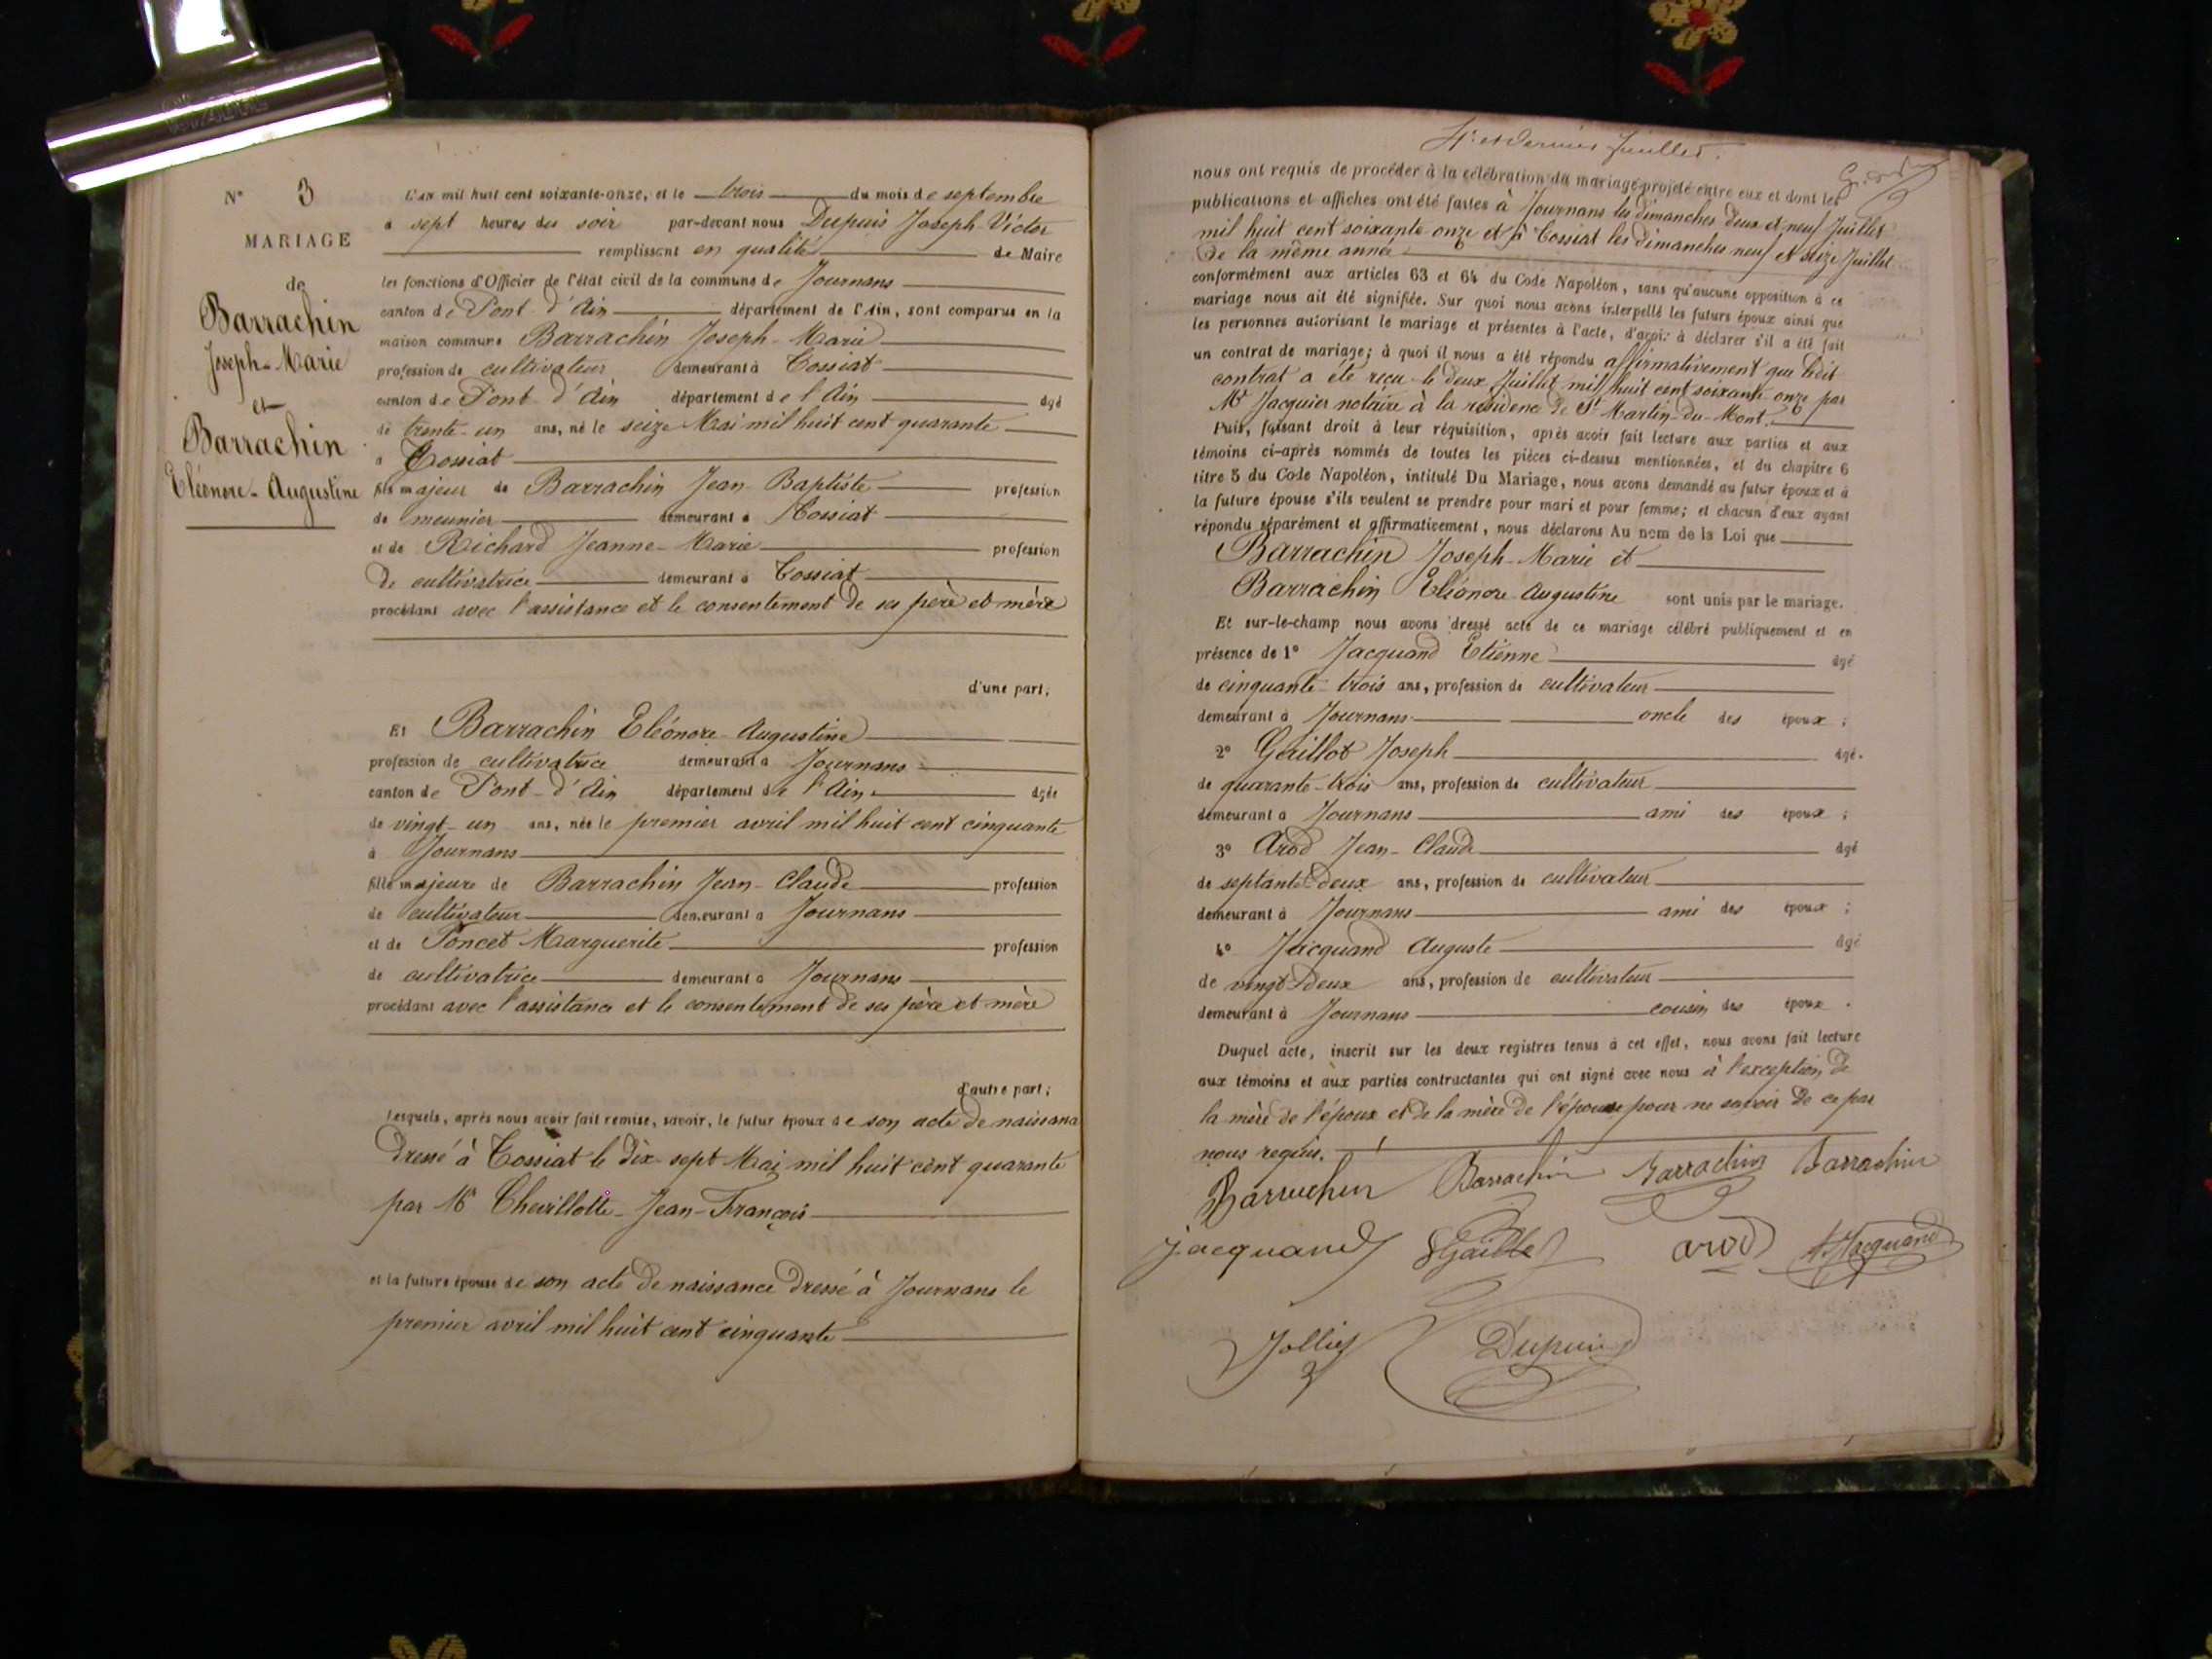 N° 3
MARIAGE
de
Barrachin
Joseph-Marie
et
Barrachin
Eléonore-Augustine
L'an mil huit cent soixante-onze, et le trois du mois de septembre
à sept heures du soir par-devant nous Dupuis Joseph Victor
remplissant en qualité de Maire
les fonctions d'Officier de l'état civil de la commune de Journans
canton de Pont-d'Ain département de l'Ain, sont comparus en la
maison commune Barrachin Joseph-Marie
profession de cultivateur demeurant à Tossiat
canton de Pont-d'Ain département de l'Ain âgé
de trente-un ans, né le seize Mai mil huit cent quarante
à Tossiat
fils majeur de Barrachin Jean-Baptiste profession
de meunier demeurant à Tossiat
et de Richard Jeanne-Marie profession
de cultivatrice demeurant à Tossiat
procédant avec l'assistance et le consentement de ses père et mère
d'une part;
Et Barrachin Eléonore Augustine
profession de cultivatrice demeurant à Journans
canton de Pont-d'Ain département de l'Ain âgée
de vingt-un ans, née le premier avril mil huit cent cinquante
à Journans
fille majeure de Barrachin Jean-Claude profession
de cultivateur demeurant à Journans
et de Poncet Marguerite profession
de cultivatrice demeurant à Journans
procédant avec l'assistance et le consentement de ses père et mère
d'autre part;
Lesquels, après nous avoir fait remise, savoir, le futur époux de son acte de naissance
dressé à Tossiat le dix-sept Mai mil huit cent quarante
par Mr Chevillotte Jean-François
et la future épouse de son acte de naissance dressé à Journans le
premier avril mil huit cent cinquante
4e et dernier feuillet.
nous ont requis de procéder à la célébration du mariage projeté entre eux et dont les
publications et affiches ont été faites à Journans les dimanches deux et neuf Juillet
mil huit cent soixante-onze et à Tossiat les dimanches neuf et seize Juillet
de la même année
conformément aux articles 63 et 64 du Code Napoléon, sans qu'aucune opposition à ce
mariage nous ait été signifiée. Sur quoi nous avons interpellé les futurs époux ainsi que
les personnes autorisant le mariage et présentes à l'acte, d'avoir à déclarer s'il a été fait
un contrat de mariage; à quoi il nous a été répondu affirmativement que ledit
contrat a été reçu le deux Juillet mil huit cent soixante-onze par
Mr Jacquier notaire à la résidence de St Martin-du-Mont.
Puis, faisant droit à leur réquisition, après avoir fait lecture aux parties et aux
témoins ci-après nommés de toutes les pièces ci-dessus mentionnées, et du chapitre 6
titre 5 du Code Napoléon, intitulé Du Mariage, nous avons demandé au futur époux et à
la future épouse s'ils veulent se prendre pour mari et pour femme; et chacun d'eux ayant
répondu séparément et affirmativement, nous déclarons Au nom de la Loi que
Barrachin Joseph-Marie et
Barrachin Eléonore Augustine sont unis par le mariage.
Et sur-le-champ nous avons dressé acte de ce mariage célébré publiquement et en
présence de 1° Jacquand Etienne âgé
de cinquante-trois ans, profession de cultivateur
demeurant à Journans oncle des époux;
2° Gaillot Joseph âgé.
de quarante-trois ans, profession de cultivateur
demeurant à Journans ami des époux;
3° Arod Jean-Claude âgé
de septante-deux ans, profession de cultivateur
demeurant à Journans ami des époux;
4° Jacquand Auguste âgé
de vingt-deux ans, profession de cultivateur
demeurant à Journans cousin des époux.
Duquel acte, inscrit sur les deux registres tenus à cet effet, nous avons fait lecture
aux témoins et aux parties contractantes qui ont signé avec nous à l'exception de
la mère de l'époux et de la mère de l'épouse pour ne savoir de ce par
nous requis.
Barrachin Barrachin Barrachin Barrachin
Jacquand Arod A. Jacquand
Dupuis